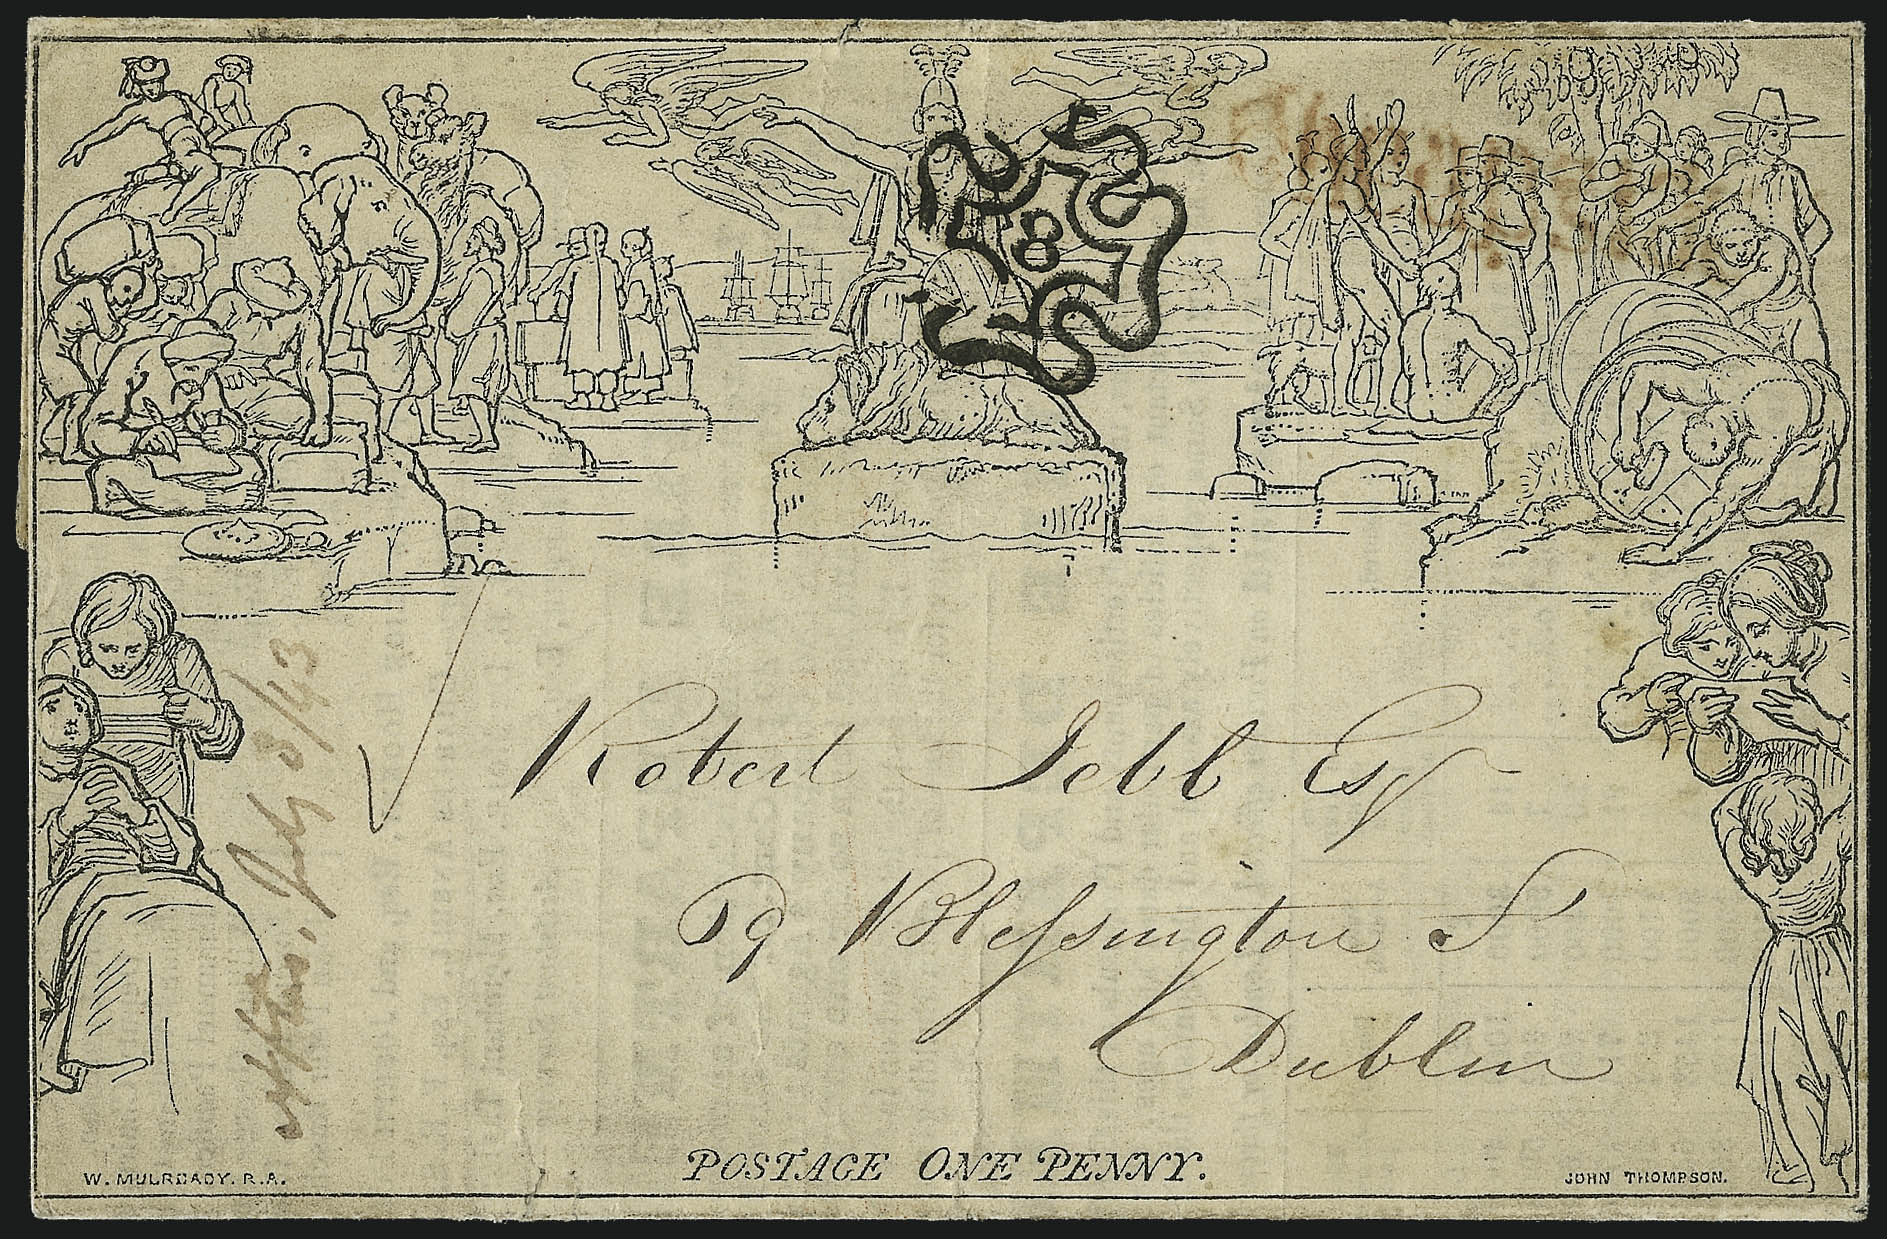 8
Robert Jebb Esq
59 Blessington St
Dublin
July 8/43
POSTAGE ONE PENNY.
W. MULREADY. R.A.
JOHN THOMPSON.